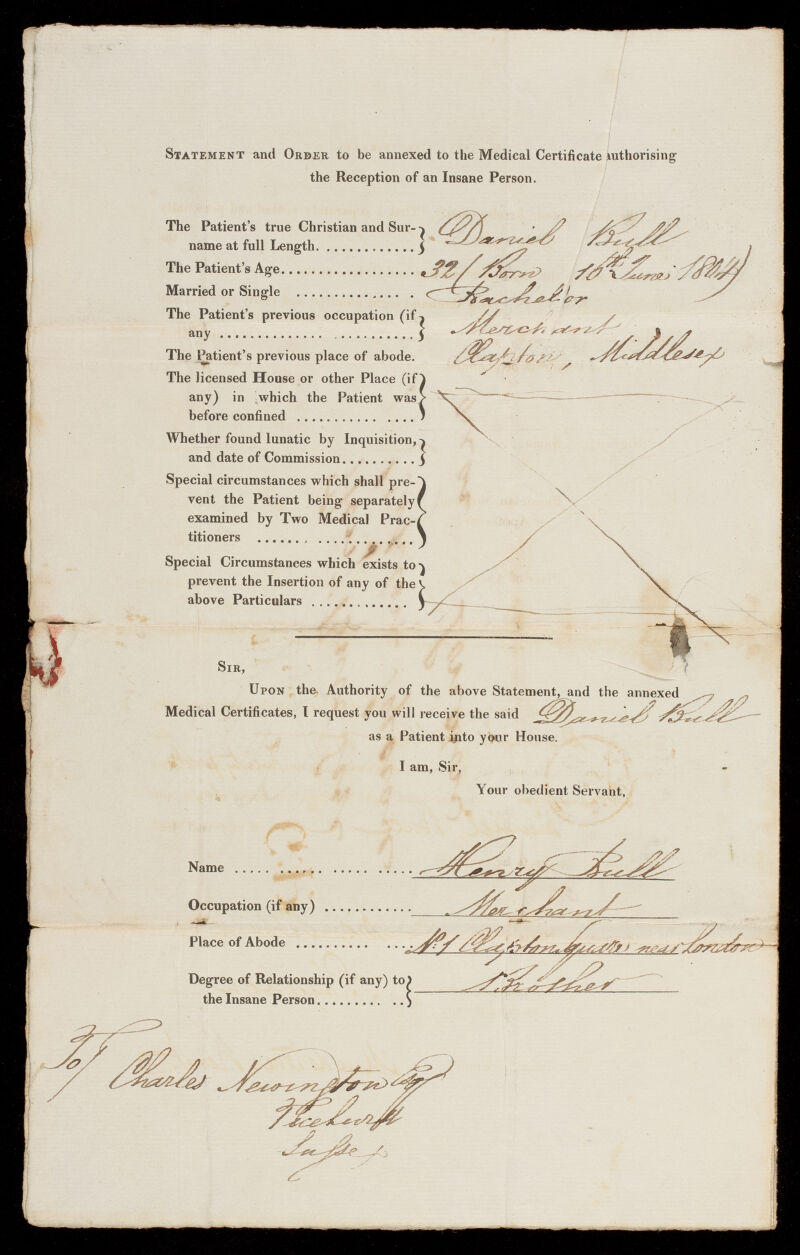 STATEMENT and ORDER to be annexed to the Medical Certificate authorising
the Reception of an Insane Person.
The Patient's true Christian and Sur-
name at full Length. ............ Daniel Bull
The Patient's Age.................. 32 (Born 16th June 1804)
Married or Single .............. . Bachelor
The Patient's previous occupation (if
any ............. ........... Merchant
The Patient's previous place of abode. Clapton, Middlesex
The licensed House or other Place (if
any) in which the Patient was
before confined ........... ....
Whether found lunatic by Inquisition,
and date of Commission..........
Special circumstances which shall pre-
vent the Patient being separately
examined by Two Medical Prac-
titioners ....... .............
Special Circumstances which exists to
prevent the Insertion of any of the
above Particulars .............
SIR,
UPON the Authority of the above Statement, and the annexed
Medical Certificates, I request you will receive the said Daniel Bull
as a Patient into your House.
I am, Sir,
Your obedient Servant,
Name ..... ........ ..... ..... Henry Bull
Occupation (if any) ............ Merchant
Place of Abode .......... .... No. 1 Clapton Square near London
Degree of Relationship (if any) to
the Insane Person......... .. Brother
To/
Charles Newington Esqr
Ticehurst
Sussex